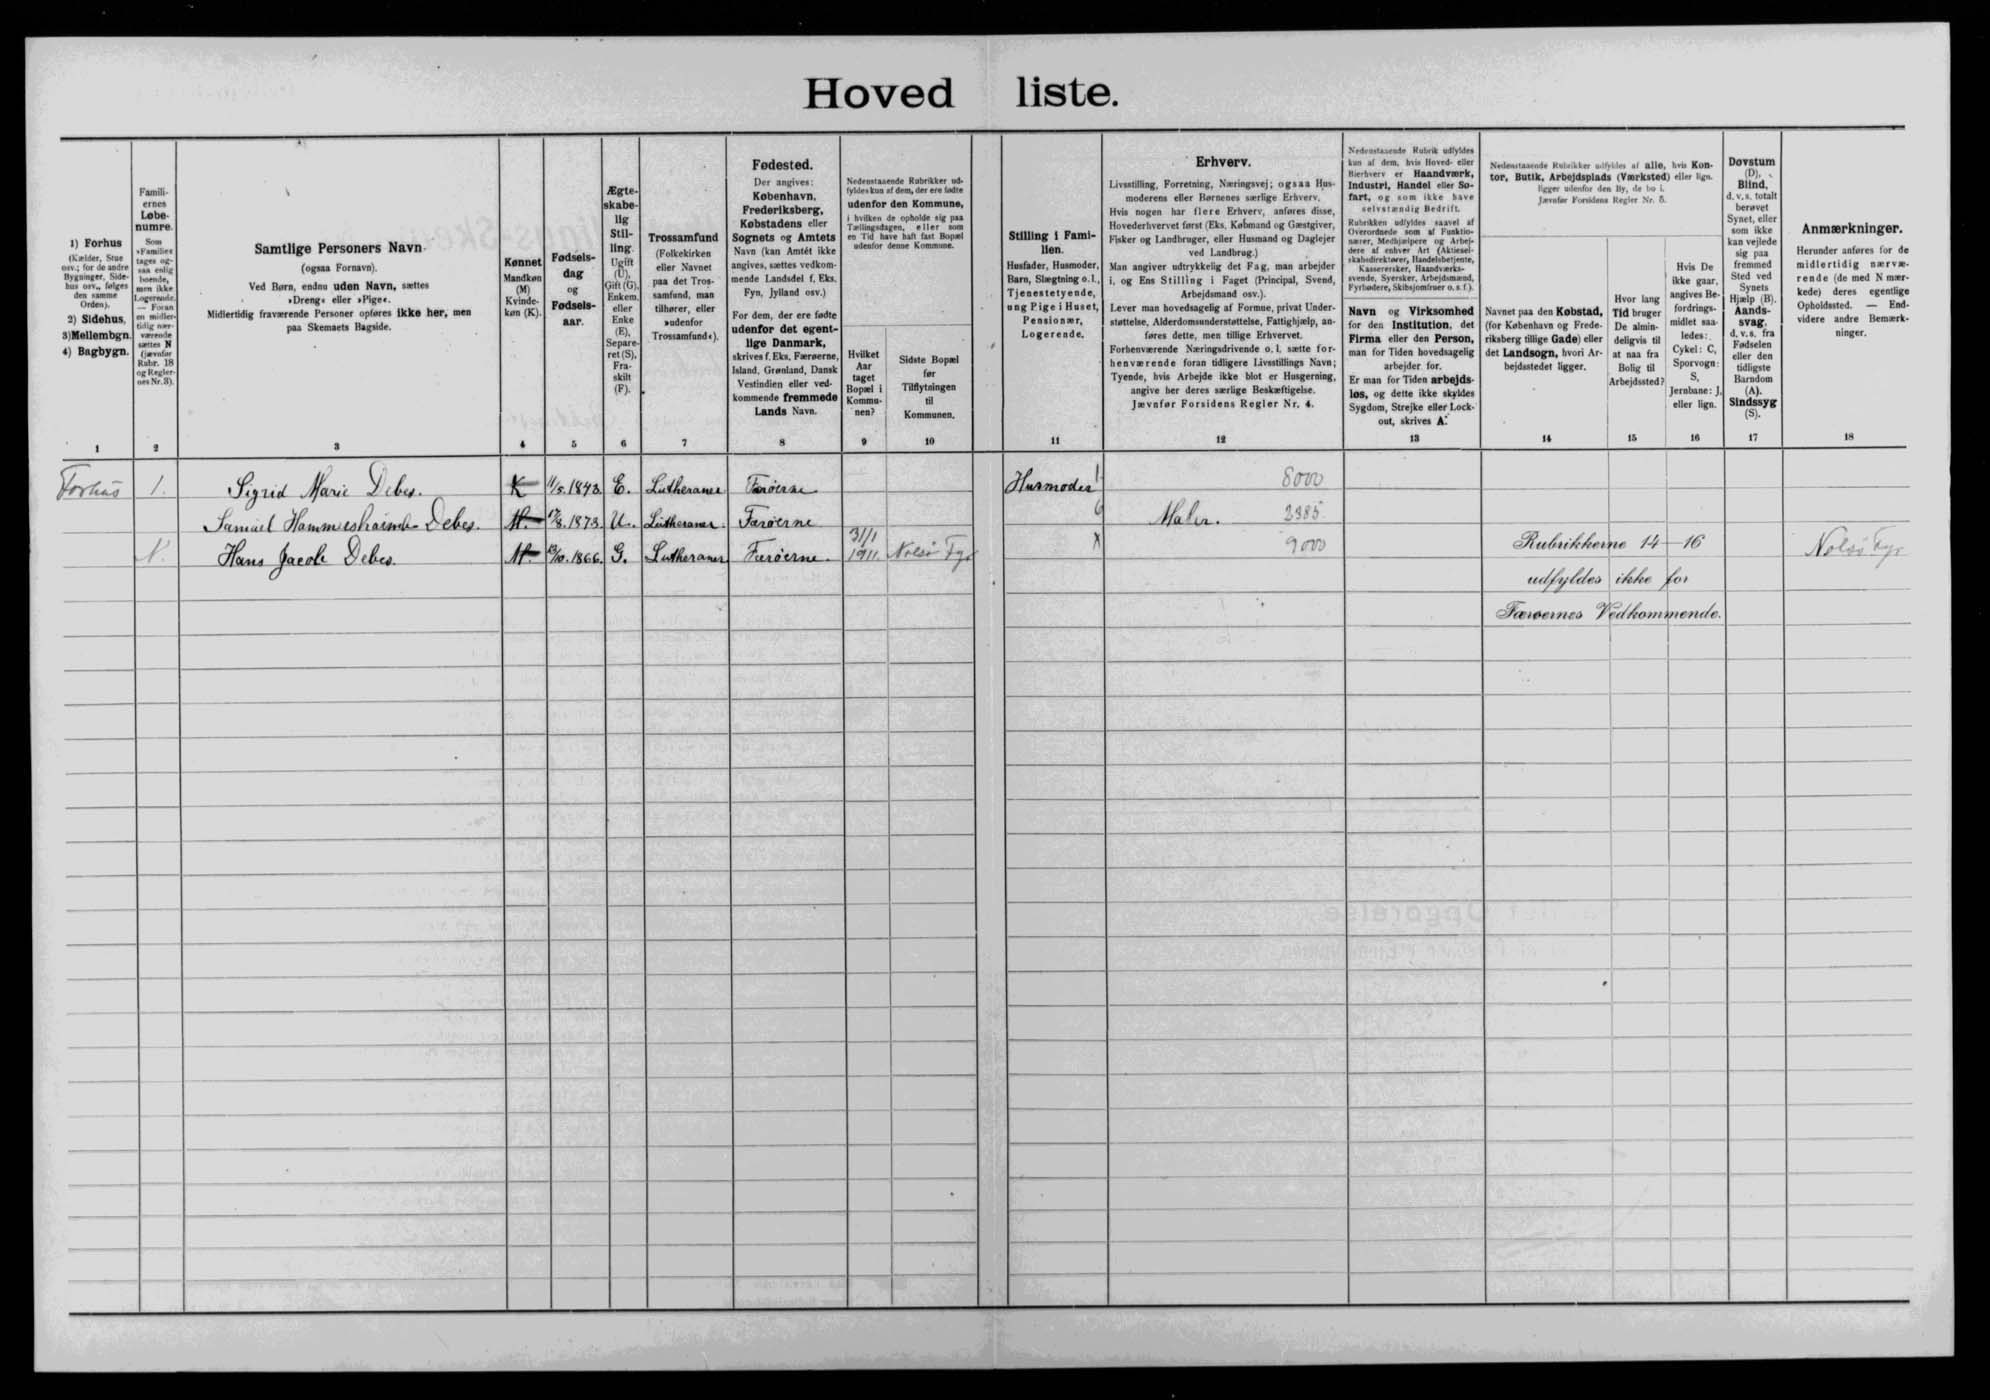 Hovedliste.
1) Forhus
(Kælder, Stue
osv.; for de andre
Bygninger, Side-
hus osv., følges
den samme
Orden).
2) Sidehus,
3) Mellembgn.
4) Bagbygn.
Famili-
ernes
Løbe-
numre.
Som
»Familie«
tages og-
saa enlig
boende,
men ikke
Logerende.
— Foran
en midler-
tidig nær-
værende
sættes N
(jævnfør
Rubr. 18
og Regler-
nes Nr. 3).
Samtlige Personers Navn
(ogsaa Fornavn).
Ved Børn, endnu uden Navn, sættes
»Dreng« eller »Pige«.
Midlertidig fraværende Personer opføres ikke her, men
paa Skemaets Bagside.
Kønnet
Mandkøn
(M)
Kvinde-
køn (K).
Fødsels-
dag
og
Fødsels-
aar.
Ægte-
skabe-
lig
Stil-
ling.
Ugift
(U),
Gift (G),
Enkem.
eller
Enke
(E),
Separe-
ret (S),
Fra-
skilt
(F).
Trossamfund
(Folkekirken
eller Navnet
paa det Tros-
samfund, man
tilhører, eller
»udenfor
Trossamfund«).
Fødested.
Der angives:
København,
Frederiksberg,
Købstadens eller
Sognets og Amtets
Navn (kan Amtet ikke
angives, sættes vedkom-
mende Landsdel f. Eks.
Fyn, Jylland osv.)
For dem, der ere fødte
udenfor det egent-
lige Danmark,
skrives f. Eks. Færøerne,
Island, Grønland, Dansk
Vestindien eller ved-
kommende fremmede
Lands Navn.
Nedenstaaende Rubrikker ud-
fyldes kun af dem, der ere fødte
udenfor den Kommune,
i hvilken de opholde sig paa
Tællingsdagen, eller som
en Tid have haft fast Bopæl
udenfor denne Kommune.
Hvilket
Aar
taget
Bopæl i
Kommu-
nen?
Sidste Bopæl
før
Tilflytningen
til
Kommunen.
Stilling i Fami-
lien.
Husfader, Husmoder,
Barn, Slægtning o.l.,
Tjenestetyende,
ung Pige i Huset,
Pensionær,
Logerende.
Erhverv.
Livsstilling, Forretning, Næringsvej; ogsaa Hus-
moderens eller Børnenes særlige Erhverv.
Hvis nogen har flere Erhverv, anføres disse,
Hovederhvervet først (Eks. Købmand og Gæstgiver,
Fisker og Landbruger, eller Husmand og Daglejer
ved Landbrug.)
Man angiver udtrykkelig det Fag, man arbejder
i, og Ens Stilling i Faget (Principal, Svend,
Arbejdsmand osv.).
Lever man hovedsagelig af Formue, privat Under-
støttelse, Alderdomsunderstøttelse, Fattighjælp, an-
føres dette, men tillige Erhvervet.
Forhenværende Næringsdrivende o. l. sætte for-
henværende foran tidligere Livsstillings Navn;
Tyende, hvis Arbejde ikke blot er Husgerning,
angive her deres særlige Beskæftigelse.
Jævnfør Forsidens Regler Nr. 4.
Nedenstaaende Rubrik udfyldes
kun af dem, hvis Hoved- eller
Bierhverv er Haandværk,
Industri, Handel eller Sø-
fart, og som ikke have
selvstændig Bedrift.
Rubrikken udfyldes saavel af
Overordnede som af Funktio-
nærer, Medhjælpere og Arbej-
dere af enhver Art (Aktiesel-
skabsdirektører, Handelsbetjente,
Kasserersker, Haandværks-
svende, Syersker, Arbejdsmænd,
Fyrbødere, Skibsjomfruer o. s. f.).
Navn og Virksomhed
for den Institution, det
Firma eller den Person,
man for Tiden hovedsagelig
arbejder for.
Er man for Tiden arbejds-
løs, og dette ikke skyldes
Sygdom, Strejke eller Lock-
out, skrives A.
Nedenstaaende Rubrikker udfyldes af alle, hvis Kon-
tor, Butik, Arbejdsplads (Værksted) eller lign.
ligger udenfor den By, de bo i.
Jævnfør Forsidens Regler Nr. 5.
Navnet paa den Købstad,
(for København og Frede-
riksberg tillige Gade) eller
det Landsogn, hvori Ar-
bejdsstedet ligger.
Hvor lang
Tid bruger
De almin-
deligvis til
at naa fra
Bolig til
Arbejdssted?
Hvis De
ikke gaar,
angives Be-
fordrings-
midlet saa-
ledes:
Cykel: C,
Sporvogn:
S,
Jernbane: J,
eller lign.
Døvstum
(D),
Blind,
d. v. s. totalt
berøvet
Synet, eller
som ikke
kan vejlede
sig paa
fremmed
Sted ved
Synets
Hjælp (B).
Aands-
svag,
d. v. s. fra
Fødselen
eller den
tidligste
Barndom
(A).
Sindssyg
(S).
Anmærkninger.
Herunder anføres for de
midlertidig nærvæ-
rende (de med N mær-
kede) deres egentlige
Opholdssted. — End-
videre andre Bemærk-
ninger.
1 2 3 4 5 6 7 8 9 10 11 12 13 14 15 16 17 18
Forhus 1. Sigrid Marie Debes. K 11/5.1843. E. Lutheraner Færøerne Husmoder 1 8000
Samuel Hammershaimb Debes. M. 17/8.1873. U. Lutheraner. Færøerne 6 Maler. 2385
N. Hans Jacob Debes. M. 13/10.1866. G. Lutheraner Færøerne. 31/1 1911. Nolsø Fyr x 9000 Rubrikkerne 14-16 Nolsø Fyr
udfyldes ikke for
Færøernes Vedkommende.